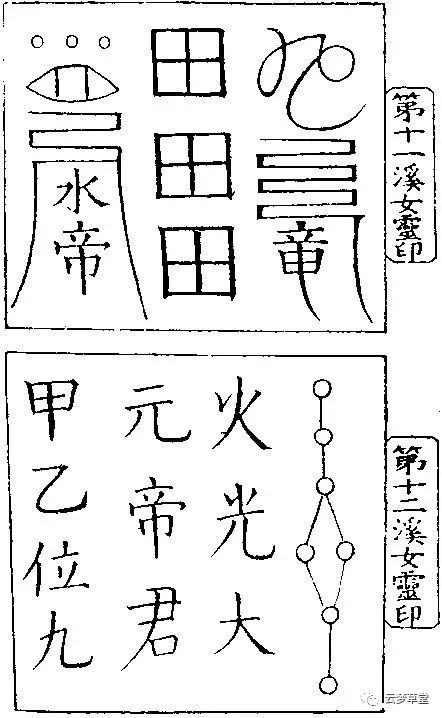 第十一溪女靈印
田田田
水帝
第十二溪女靈印
火光大
元帝君
甲乙位九
云梦草堂